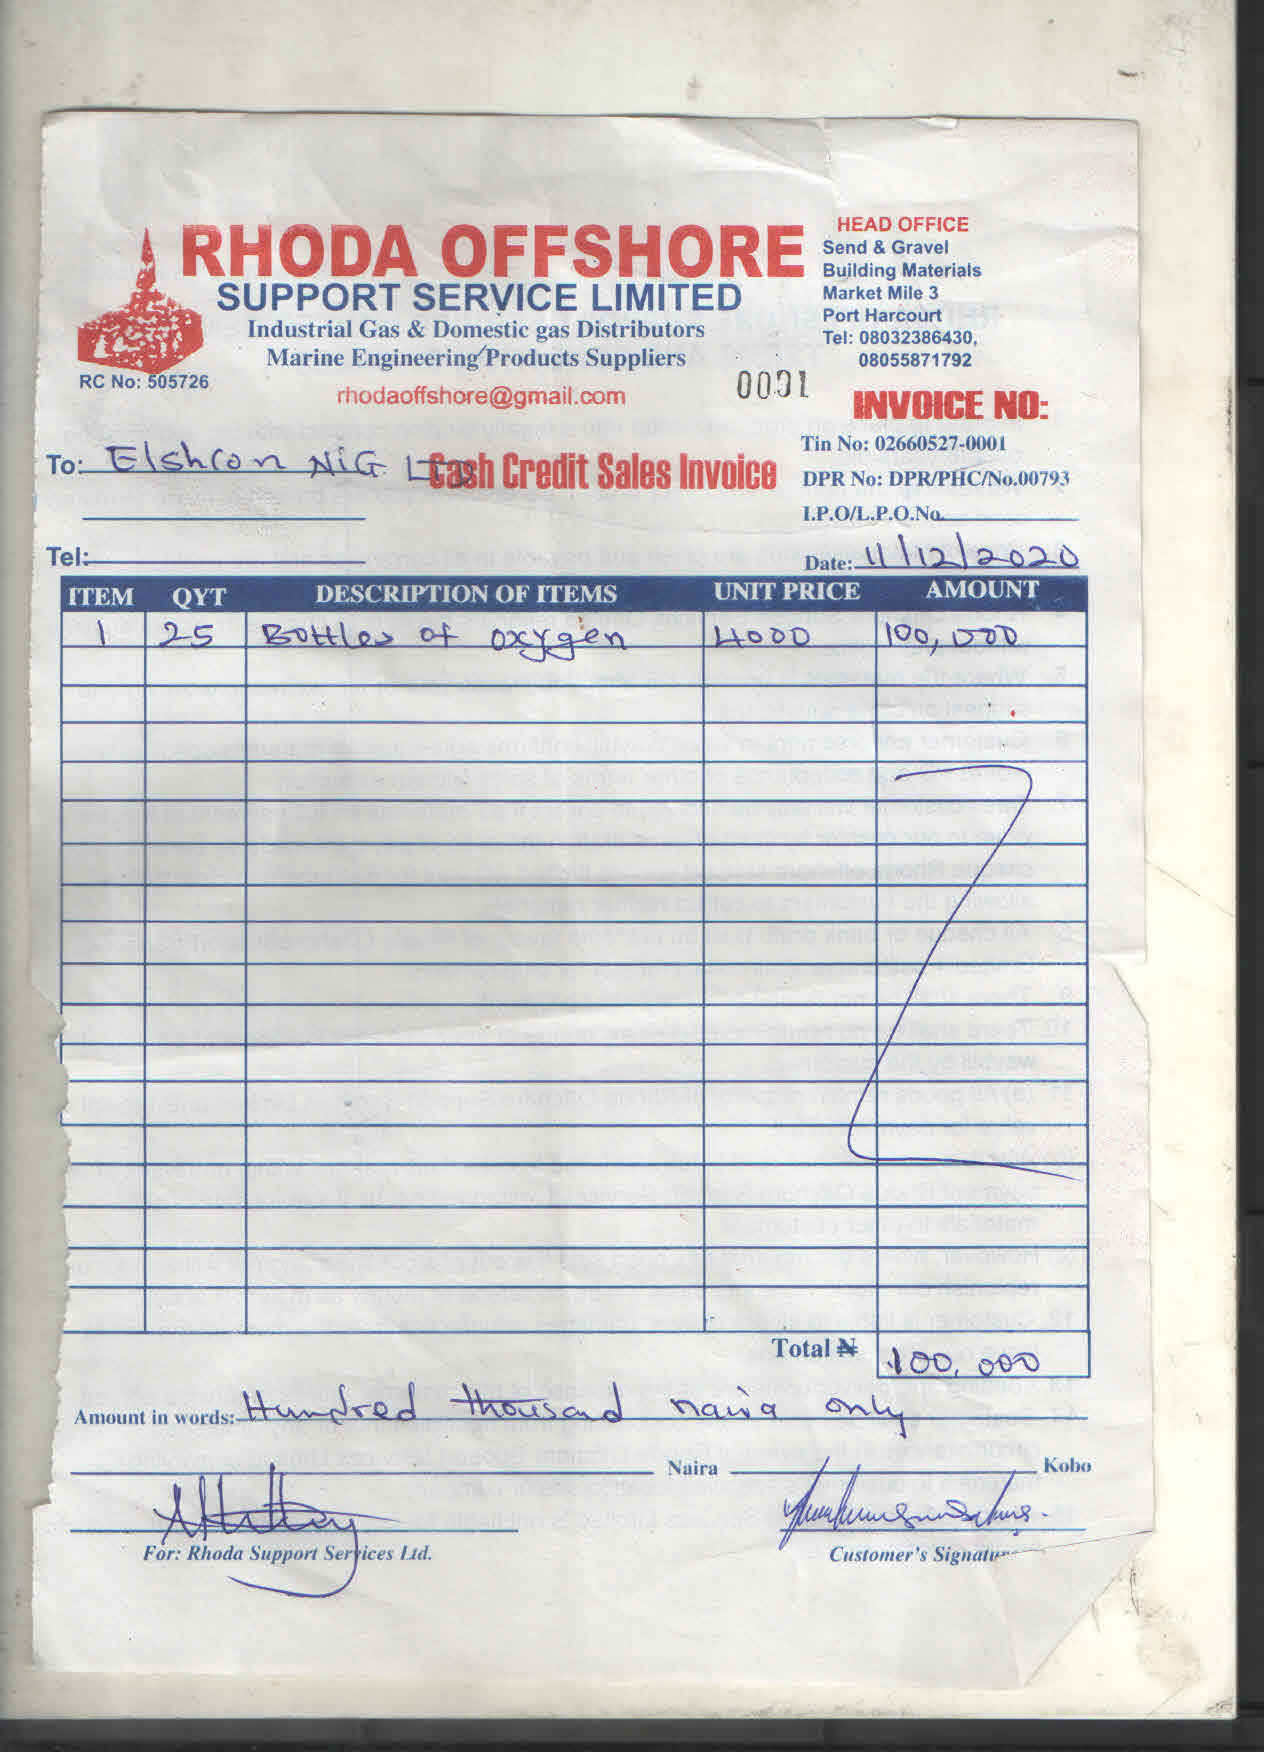 RHODA OFFSHORE
SUPPORT SERVICE LIMITED
Industrial Gas & Domestic gas Distributors
Marine Engineering Products Suppliers
rhodaoffshore@gmail.com
RC No: 505726
HEAD OFFICE
Send & Gravel
Building Materials
Market Mile 3
Port Harcourt
Tel: 08032386430,
08055871792
0001
INVOICE NO:
Tin No: 02660527-0001
To: Elshcon NiG LTD
Cash Credit Sales Invoice
DPR No: DPR/PHC/No.00793
I.P.O/L.P.O.No.
Tel:
Date: 11/12/2020
ITEM QYT DESCRIPTION OF ITEMS UNIT PRICE AMOUNT
1 25 Bottles of oxygen 4000 100,000
Total ₦ 100,000
Amount in words: Hundred thousand naira only
Naira Kobo
For: Rhoda Support Services Ltd.
Customer's Signature